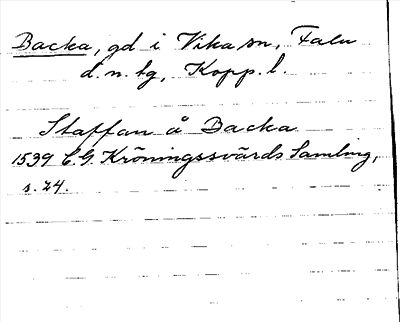 Backa, gd i Vika sn, Falu
d.n. tg, Kopp. l.
Staffan å Backa
1539 C.G. Kröningssvärds Samling,
s. 24.